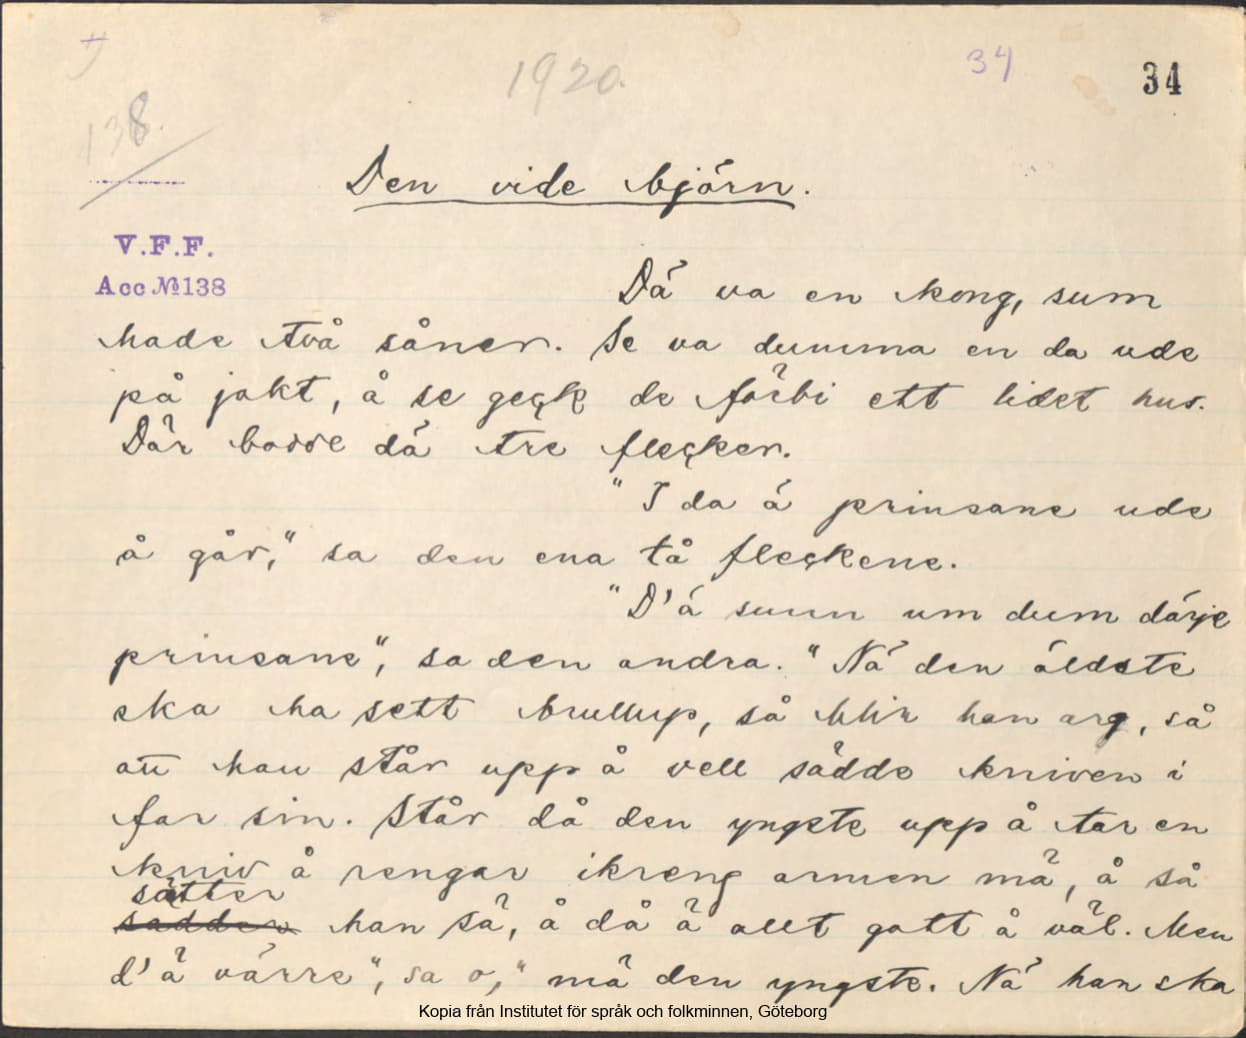 1920.
34
34
138.
Den vide björn.
V.F.F.
Acc № 138
Dä va en kong, sum
hade två såner. Se va dumma en da ude
på jakt, å se gečk de förbi ett lidet hus.
Där bodde dä tre flečker.
"I da ä prinsane ude
å går," sa den ena tå flečkene.
"D'ä sunn um dum därje
prinsane", sa den andra. "Nä den äldste
ska ha sett brullup, så blir han arg, så
att han står upp å vell sädde kniven i
far sin. Står då den yngste upp å tar en
kniv å rengar ikreng armen mä, å så
sätter
sadder han sä, å då ä allt gott å väl. Men
d'ä värre", sa o, "mä den yngste. Nä han ska
Kopia från Institutet för språk och folkminnen, Göteborg